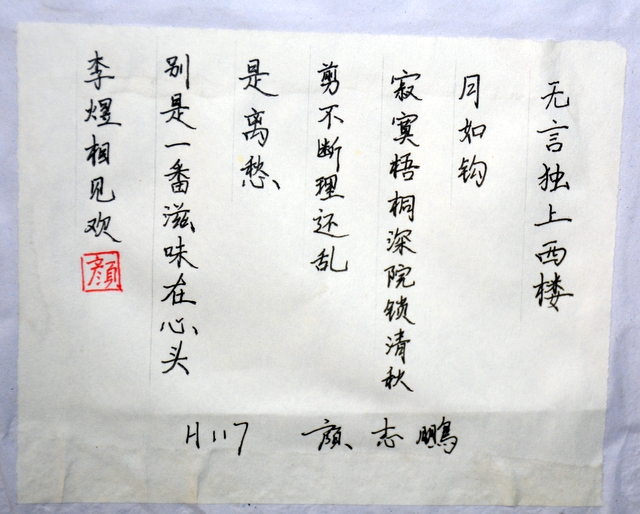 无言独上西楼
月如钩
寂寞梧桐深院锁清秋
剪不断理还乱
是离愁
别是一番滋味在心头
李煜相见欢
顏
H117 颜志鹏